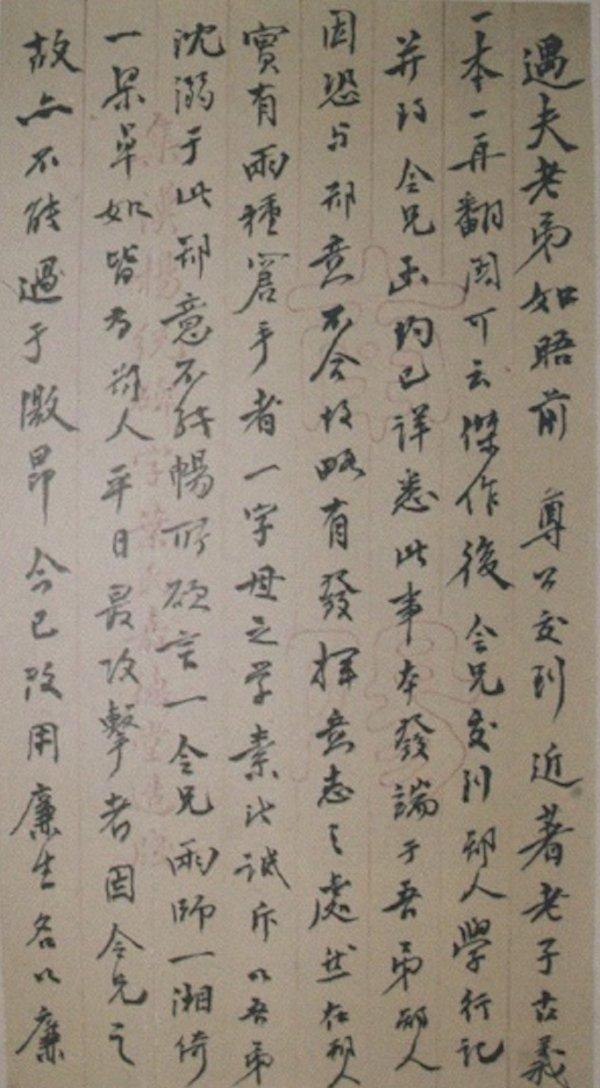 遇夫老弟如晤前　尊公交到　近著老子古義
一本一再翻閱可云傑作後　令兄交到鄙人學行記
并致　令兄函均已詳悉此事本發端于吾弟鄙人
因恐與鄙意不合故略有發揮意志之處然在鄙人
實有兩種窘乎者一字母之学素所譏斥以吾弟
沈溺于此鄙意不能暢所欲言一令兄兩師一湘綺
一杲卓如皆为鄙人平日最攻擊者因令兄之
故亦不能過于激昂今已改用廉生名以廉